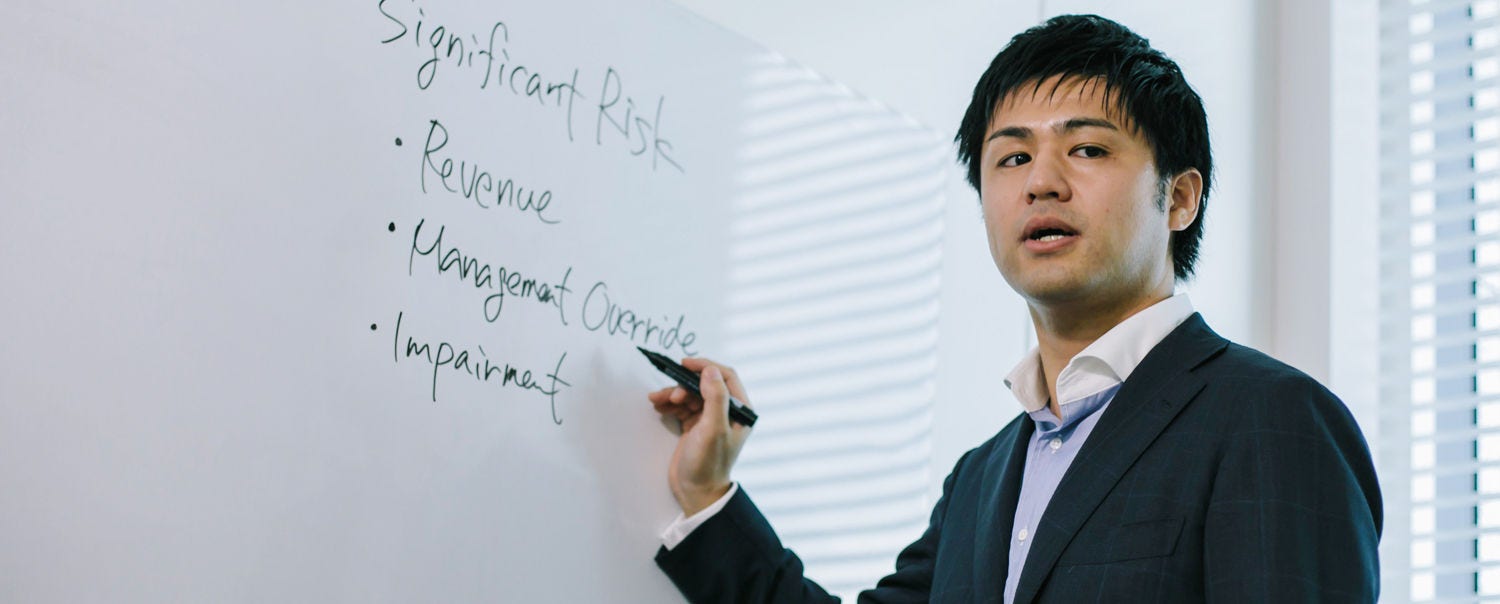 Significant Risk
• Revenue
• Management Override
• Impairment